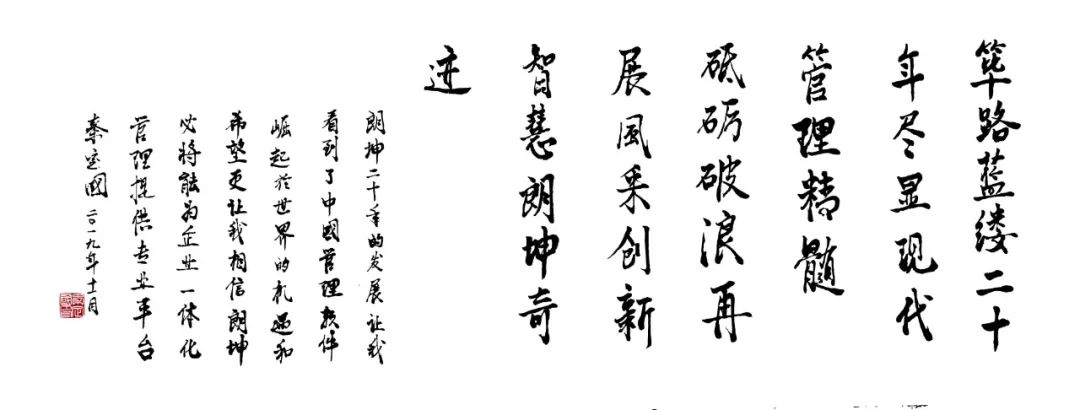 筚路蓝缕二十
年尽显现代
管理精髓
砥砺破浪再
展风采创新
智慧朗坤奇
迹
朗坤二十年的发展让我
看到了中國管理软件
崛起於世界的机遇和
希望更让我相信朗坤
必将能为企业一体化
管理提供专业平台
秦定國二〇一九年十一月